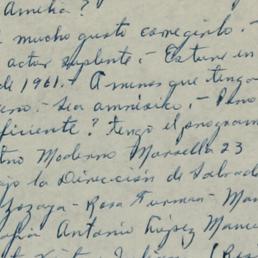 Amelia?
mucho gusto corregirlo. -
actor suplente. - Estuve en
de 1961. - A menos que tenga
sea amnésico. - Pero
ficiente? tengo el program
Moderno Marsella 23
jo la Dirección de Salvad
Gozaya - Rosa Furman - Ma
Antonio López Mance